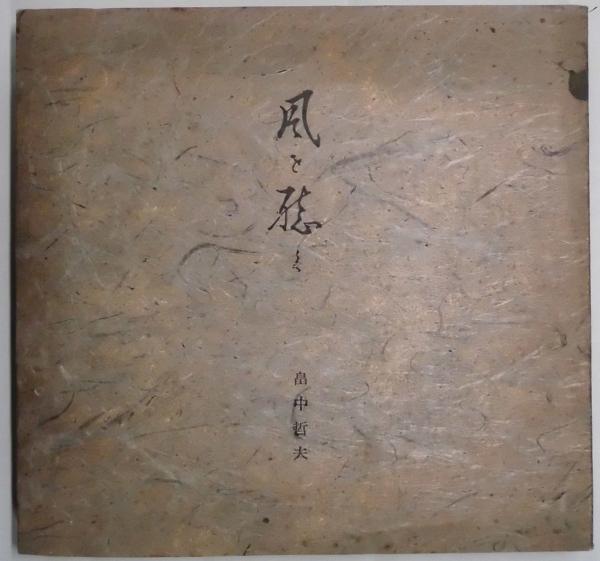 風を聴く
畠中哲夫